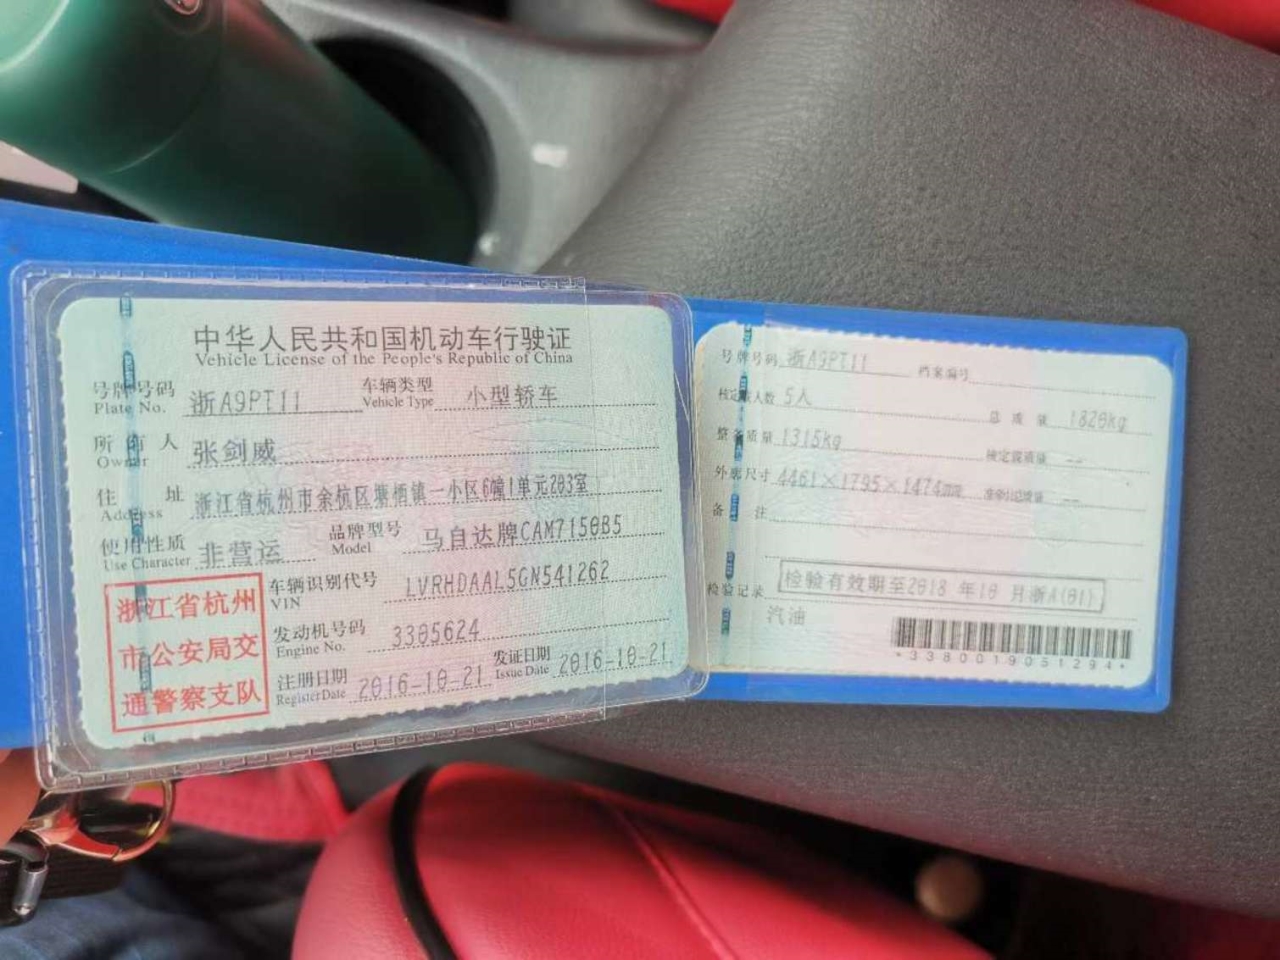 中华人民共和国机动车行驶证
Vehicle License of the People's Republic of China
号牌号码 浙A9PT11 车辆类型 小型轿车
Plate No. Vehicle Type
所有人 张剑威
Owner
住址 浙江省杭州市余杭区塘栖镇一小区6幢1单元203室
Address
使用性质 非营运 品牌型号 马自达牌CAM7150B5
Use Character Model
车辆识别代号 LVRHDAAL5GN541262
VIN
发动机号码 3305624
Engine No.
注册日期 2016-10-21 发证日期 2016-10-21
Register Date Issue Date
浙江省杭州
市公安局交
通警察支队
号牌号码 浙A9PT11 档案编号
核定载人数 5人 总质量 1820kg
整备质量 1315kg 核定载质量 --
外廓尺寸 4461×1795×1474mm 准牵引总质量 --
备注
检验记录 检验有效期至2018年10月浙A(01)
汽油
*3380019051294*